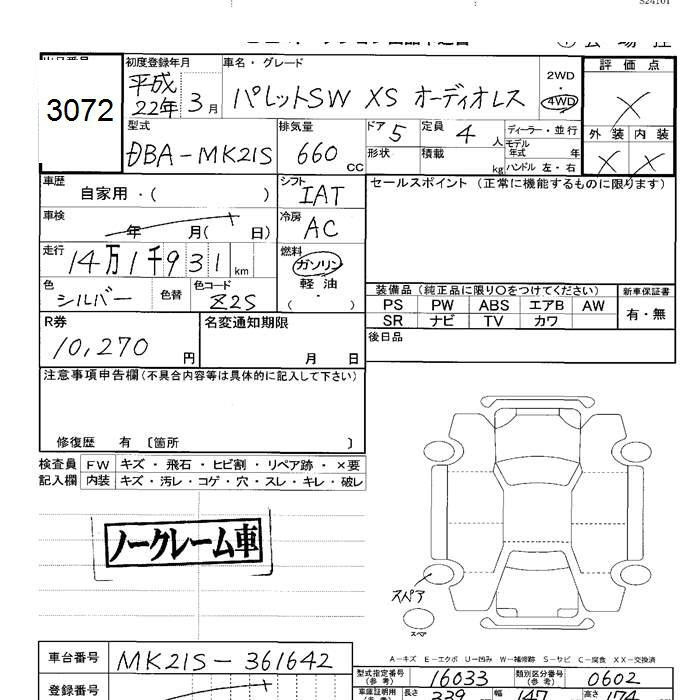 S24101
出品番号
3072
初度登録年月
平成
22年 3月
車名・グレード
パレットSW XS オーディオレス
2WD
・
4WD
評価点
×
外装 内装
× ×
型式
DBA-MK21S
排気量
660 CC
ドア 5
定員 4 人
形状
積載 kg
ディーラー・並行
モデル年式 年
ハンドル 左・右
車歴
自家用・( )
シフト
IAT
車検
年 月( 日)
冷房
AC
走行
14万1千931km
燃料
ガソリン
軽油
( ・ )
色
シルバー
色替
色コード
Z2S
セールスポイント (正常に機能するものに限ります)
装備品 (純正品に限り○をつけてください)
PS PW ABS エアB AW
SR ナビ TV カワ
新車保証書
有・無
後日品
R券
10,270 円
名変通知期限
月 日
注意事項申告欄 (不具合内容等は具体的に記入して下さい)
修復歴 有 〔箇所 〕
検査員
記入欄
FW キズ・飛石・ヒビ割・リペア跡・×要
内装 キズ・汚レ・コゲ・穴・スレ・キレ・破レ
ノークレーム車
スペア
スペア
A-キズ E-エクボ U-凹み W-補修跡 S-サビ C-腐食 XX-交換済
車台番号
MK21S-361642
登録番号
型式指定番号
(参考)
16033
類別区分番号
(参考)
0602
車庫証明用
長さ 339
幅 147
高さ 174